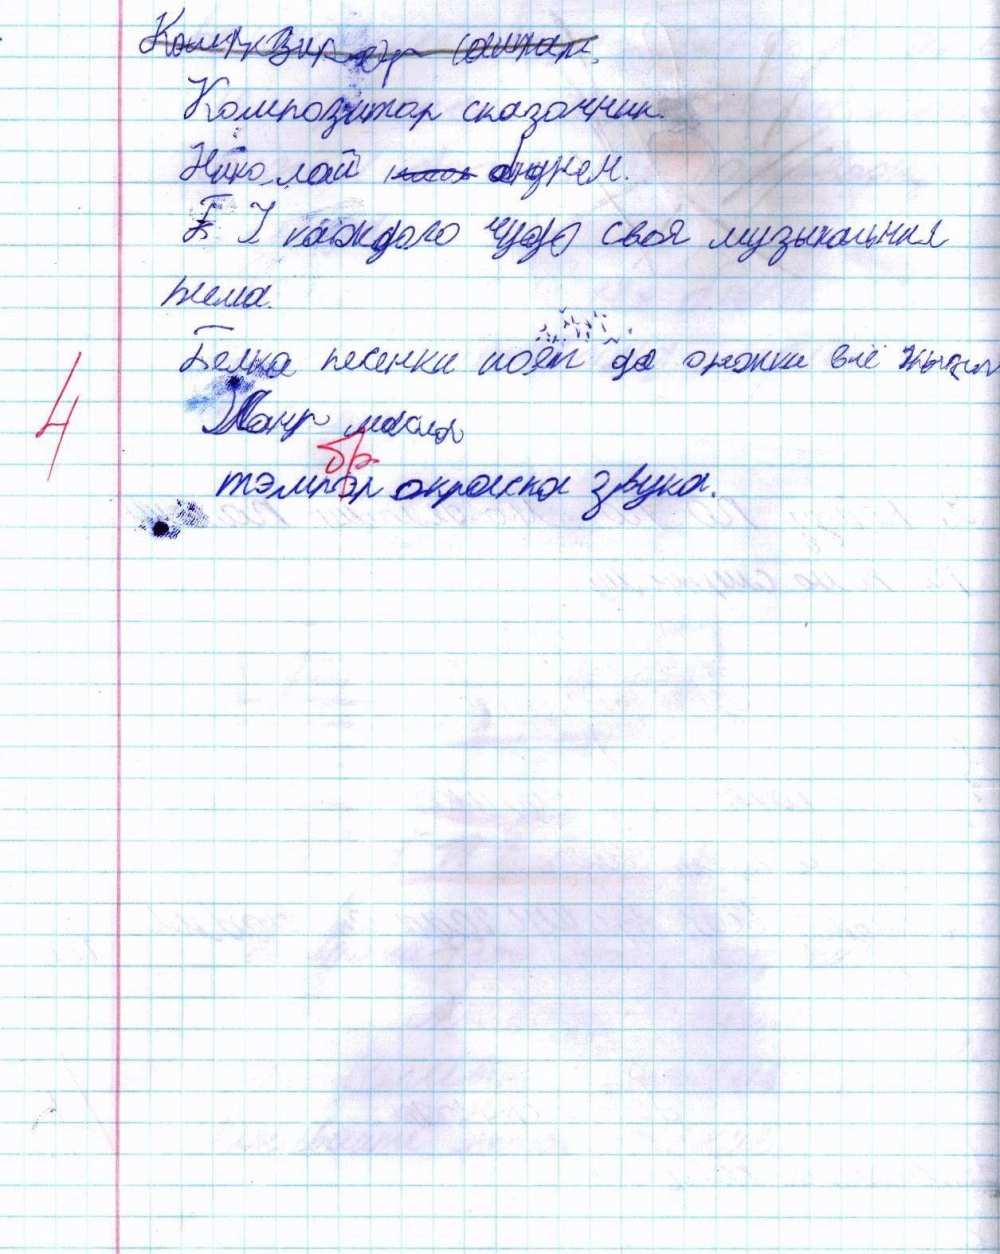 Композитор сказочник.
Николай андреи.
У каждого чудо своя музыкальная
тема.
Белка песенки поёт да орожки всё
Жанр
тэмпэр окраска звука.
бр
4